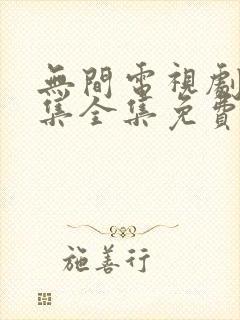 無間電視劇
集全集免費
施善行